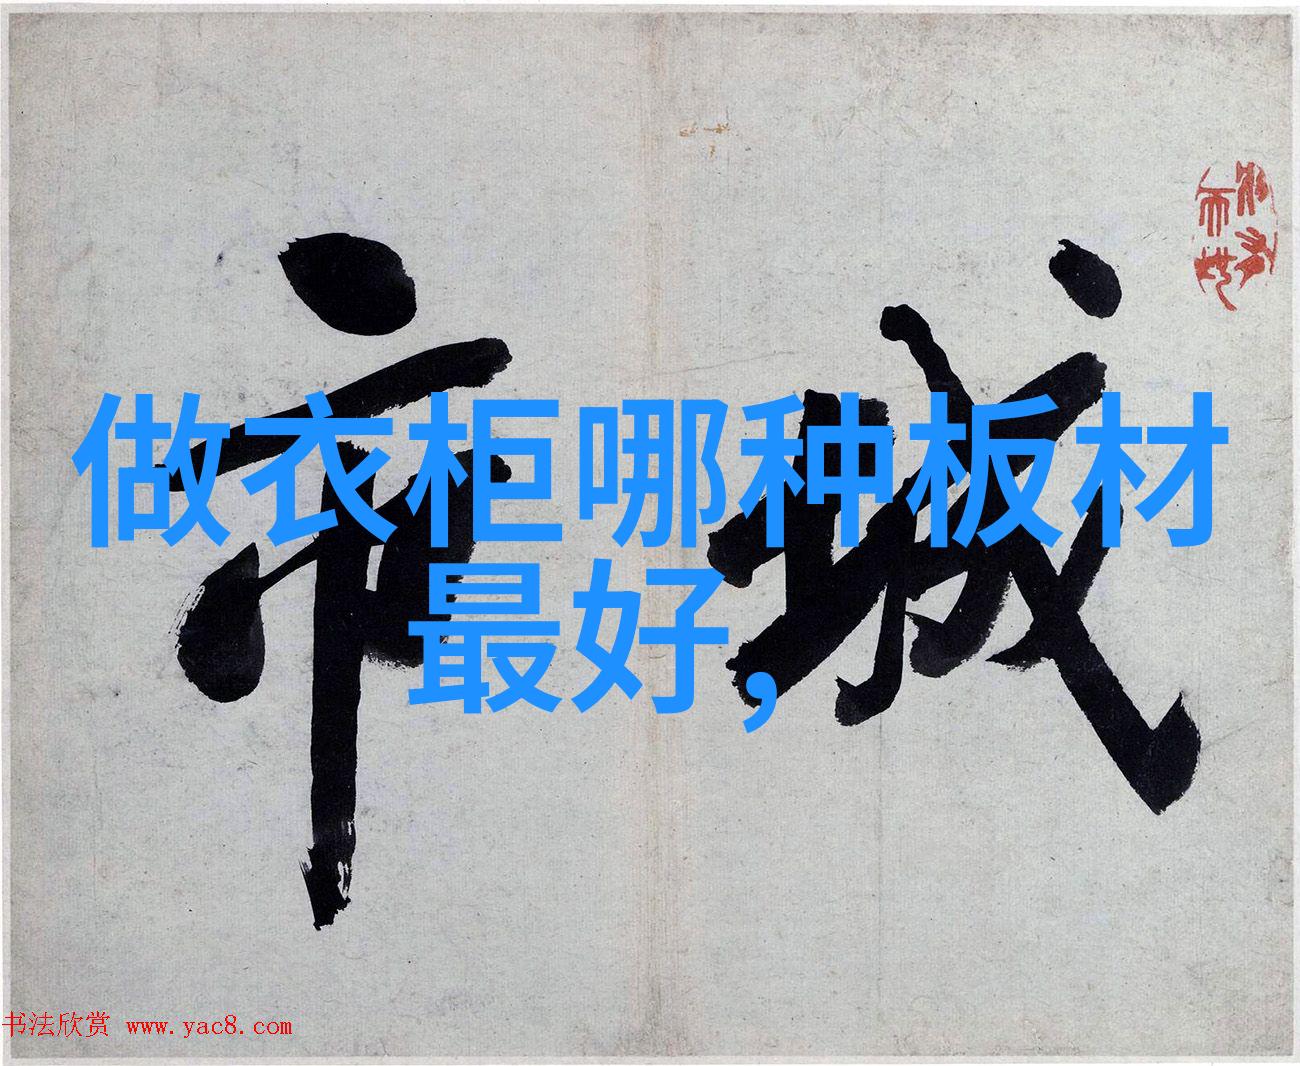 做衣柜哪种板材
最好,
市城
书法欣赏 www.yac8.com